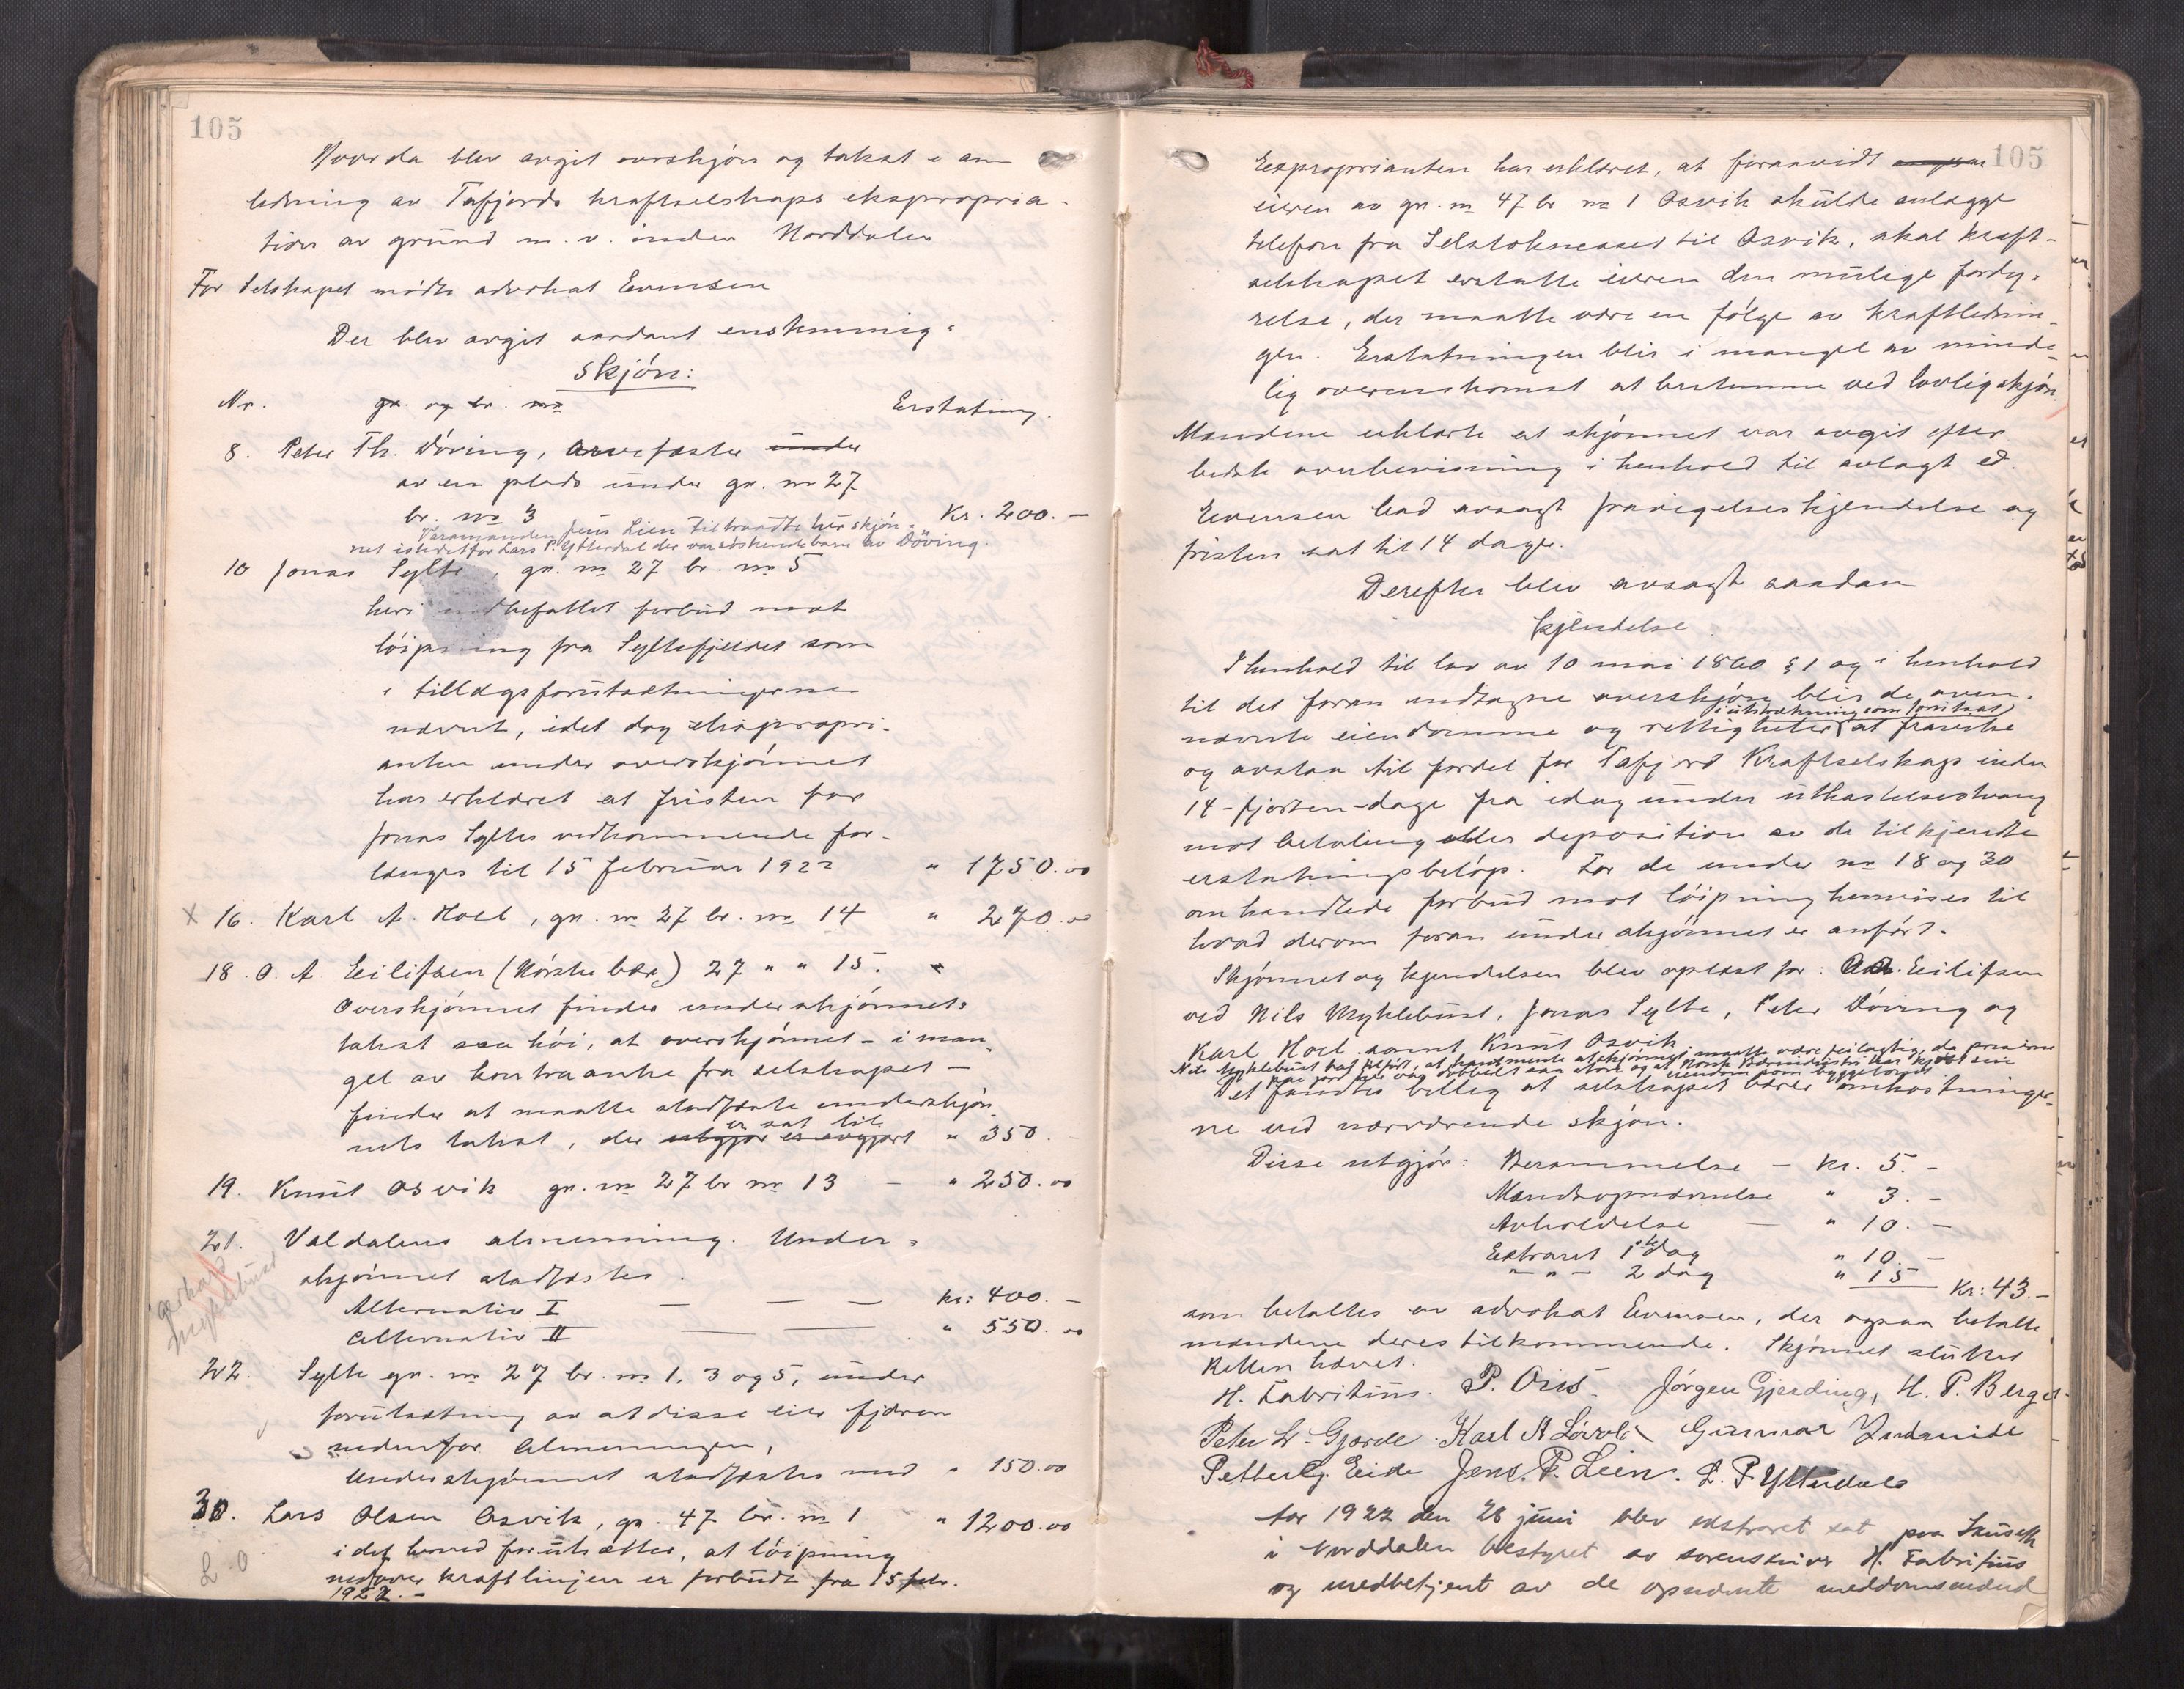 105
Hvorda blev avgit overskjøn og takst i an
ledning av Tafjords kraftselskaps ekspropria-
tion av grund m. v. inden Norddalen
For Selskapet mødte advokat Evensen
Der blev avgit saadant enstemmig
Skjøn:
Nr. gr. og br. no Erstatning.
8. Peter Th. Døving, arvefæster under
av en plads under gr. no 27
br. no 3 Kr. 200.-
Varamanden Jens Lien tiltraadte her skjøn-
net istedetfor Lars P. Ytterdal der var søskendebarn av Døving.
10 Jonas Sylte, gr. no 27 br. no 5
heri indbefattet forbud mot
løipning fra Syltefjeldet som
i tillægsforutsætningerne
nævnt, idet dog ekspropri-
anten under overskjønnet
har erklæret at fristen for
Jonas Syltes vedkommende for-
længes til 15 februar 1922 " 1750.00
x 16. Karl A. Hoel, gr. no 27 br. no 14 " 270.00
18. O. A. Eilifsen (Norske bær.) 27 " " 15.
Overskjønnet finder underskjønnets
takst saa høi, at overskjønnet - i man-
gel av kontraanke fra selskapet -
finder at maatte stadfæste underskjøn
er sat til
nets takst, der utgjør er avgjort " 350.
19. Knut Osvik gr. no 27 br no 13 - " 250.00
21. Valdalens almenning. Under-
skjønnet stadfæstes.
Alternativ I — — — kr: 400.-
Alternativ II — — " 550.00
Myklebust
22. Sylte gr. no 27 br. no 1, 3 og 5, under
forutsætning av at disse eier fjæren
nedenfor Almenningen,
Underskjønnet stadfæstes med " 150.00
30. Lars Olsen Osvik, gr. 47 br. no 1 " 1200.00
idet herved forutsættes, at løipning
nedover kraftlinjen er forbudt fra 15 febr.
1922.-
L. O
105
Expropriantem har erklæret, at forsaavidt
eieren av gr. no 47 br no 1 Osvik skulde anlægge
telefon fra Selstokneset til Osvik, skal kraft-
selskapet erstatte eieren den mulige fordy-
relse, der maatte være en følge av kraftlednin-
gen. Erstatningen blir i mangel av minde-
lig overenskomst at bestemme ved lovlig skjøn.
Mændene erklærte at skjønnet var avgit efter
bedste overbevisning i henhold til avlagt ed.
Evensen bad avsagt fravigelseskjendelse og
fristen sat til 14 dage.
Derefter blev avsagt saadan
kjendelse
I henhold til lov av 10 mai 1860 § 1 og i henhold
til det foran indtagne overskjøn blir de oven-
i utstrækning som forutsat
nævnte eiendomme og rettigheter at fravike
og avstaa til fordel for Tafjord Kraftselskap inden
14-fjorten-dage fra idag under utkastelsestvang
mot betaling eller deposition av de tilkjendte
erstatningsbeløp. For de under no 18 og 30
omhandlede forbud mot løipning henvises til
hvad derom foran under skjønnet er anført.
Skjønnet og kjendelsen blev oplæst for: O.A. Eilifsen
ved Nils Myklebust, Jonas Sylte, Peter Døving og
Karl Hoel samt Knut Osvik.
Nils Myklebust bad tilført, at han mente at skjønnet maatte være feilagtig, da
Det fandtes billig at selskapet bærer omkostninger-
ne ved nærværende skjøn.
Disse utgjør: Berammelse - kr. 5.-
Mændsopnævnelse " 3.-
Avholdelse — " 10.-
Extraret 1ste dag " 10.-
- " - 2 dag " 15 Kr: 43.-
som betaltes av advokat Evensen, der ogsaa betalte
mændene deres tilkommende. Skjønnet sluttet
Retten hævet.
H. Fabritius. P. Ous. Jørgen Gjerding, H. P. Berget
Peter L. Gjærde. Karl A Løvol Gunnar
Petter G. Eide Jens. P. Lien. L. P. Ytterdal
Aar 1922 den 28 juni blev ekstraret sat paa
i Norddalen bestyret av sorenskriver H. Fabritius
og medbetjent av de opnævnte meddomsmænd